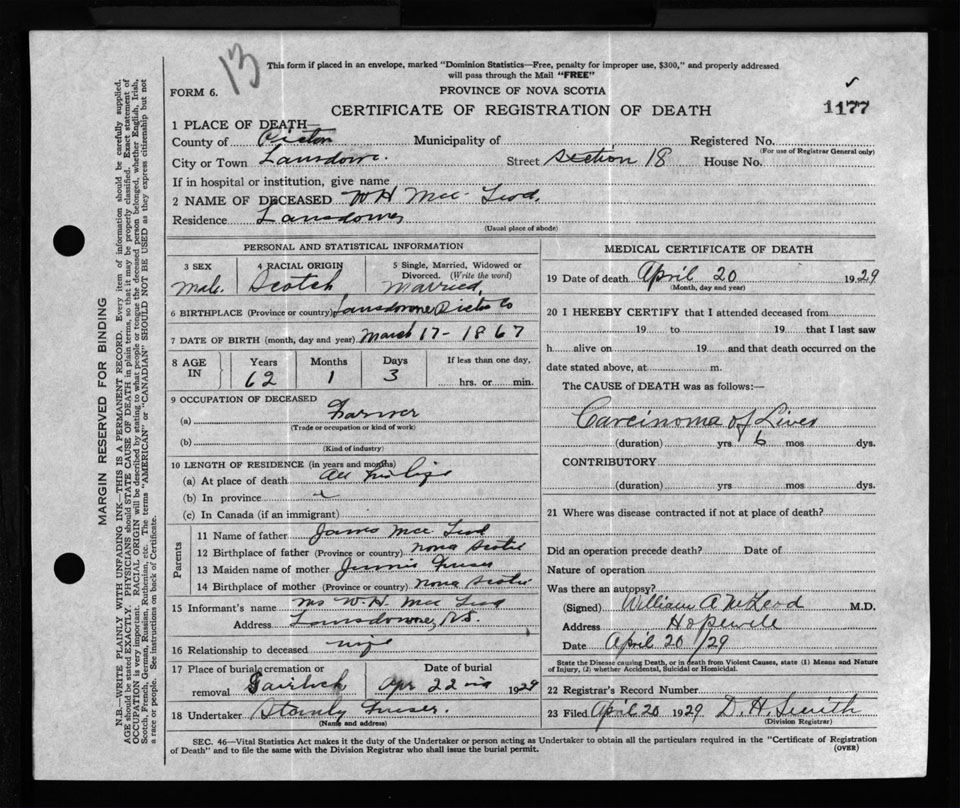 13
This form if placed in an envelope, marked "Dominion Statistics—Free, penalty for improper use, $300," and properly addressed
will pass through the Mail "FREE"
FORM 6.
PROVINCE OF NOVA SCOTIA
CERTIFICATE OF REGISTRATION OF DEATH
1177
1 PLACE OF DEATH—
County of Pictou Municipality of Registered No.
(For use of Registrar General only)
City or Town Lansdowne. Street Section 18 House No.
If in hospital or institution, give name
2 NAME OF DECEASED W H Mc Leod.
Residence Lansdowne
(Usual place of abode)
PERSONAL AND STATISTICAL INFORMATION
3 SEX 4 RACIAL ORIGIN 5 Single, Married, Widowed or
Divorced. (Write the word)
Male. Scotch Married,
6 BIRTHPLACE (Province or country) Lansdowne Pictou Co
7 DATE OF BIRTH (month, day and year) March 17 - 1867
8 AGE IN Years Months Days If less than one day,
62 1 3 hrs. or min.
9 OCCUPATION OF DECEASED
(a) Farmer
(Trade or occupation or kind of work)
(b)
(Kind of industry)
10 LENGTH OF RESIDENCE (in years and months)
(a) At place of death All his life
(b) In province
(c) In Canada (if an immigrant)
Parents
11 Name of father James Mc Leod
12 Birthplace of father (Province or country) Nova Scotia
13 Maiden name of mother Jennie Fraser
14 Birthplace of mother (Province or country) Nova Scotia
15 Informant's name Mrs W. H. Mc Leod
Address Lansdowne, N.S.
16 Relationship to deceased wife
17 Place of burial cremation or Date of burial
removal Gairloch Apr 22 1929
18 Undertaker Stanly Fraser.
(Name and address)
MEDICAL CERTIFICATE OF DEATH
19 Date of death April 20 1929
(Month, day and year)
20 I HEREBY CERTIFY that I attended deceased from
19 to 19 that I last saw
h alive on 19 and that death occurred on the
date stated above, at m.
The CAUSE of DEATH was as follows:—
Carcinoma of Liver
(duration) yrs 6 mos dys.
CONTRIBUTORY
(duration) yrs mos dys.
21 Where was disease contracted if not at place of death?
Did an operation precede death? Date of
Nature of operation
Was there an autopsy?
(Signed) William A McLeod M.D.
Address Hopewell
Date April 20 /29
State the Disease causing Death, or in death from Violent Causes, state (1) Means and Nature
of Injury, (2) whether Accidental, Suicidal or Homicidal.
22 Registrar's Record Number
23 Filed April 20 1929 D. H. Smith
(Division Registrar)
SEC. 46—Vital Statistics Act makes it the duty of the Undertaker or person acting as Undertaker to obtain all the particulars required in the "Certificate of Registration
of Death" and to file the same with the Division Registrar who shall issue the burial permit.
(OVER)
MARGIN RESERVED FOR BINDING
N.B.—WRITE PLAINLY WITH UNFADING INK—THIS IS A PERMANENT RECORD. Every item of information should be carefully supplied.
AGE should be stated EXACTLY. PHYSICIANS should STATE CAUSE OF DEATH in plain terms, so that it may be properly classified. Exact statement of
OCCUPATION is very important. RACIAL ORIGIN will be described by stating to what people or tongue the deceased person belonged, whether English, Irish,
Scotch, French, German, Russian, Ruthenian, etc. The terms "AMERICAN" or "CANADIAN" SHOULD NOT BE USED as they express citizenship but not
a race or people. See instructions on back of Certificate.